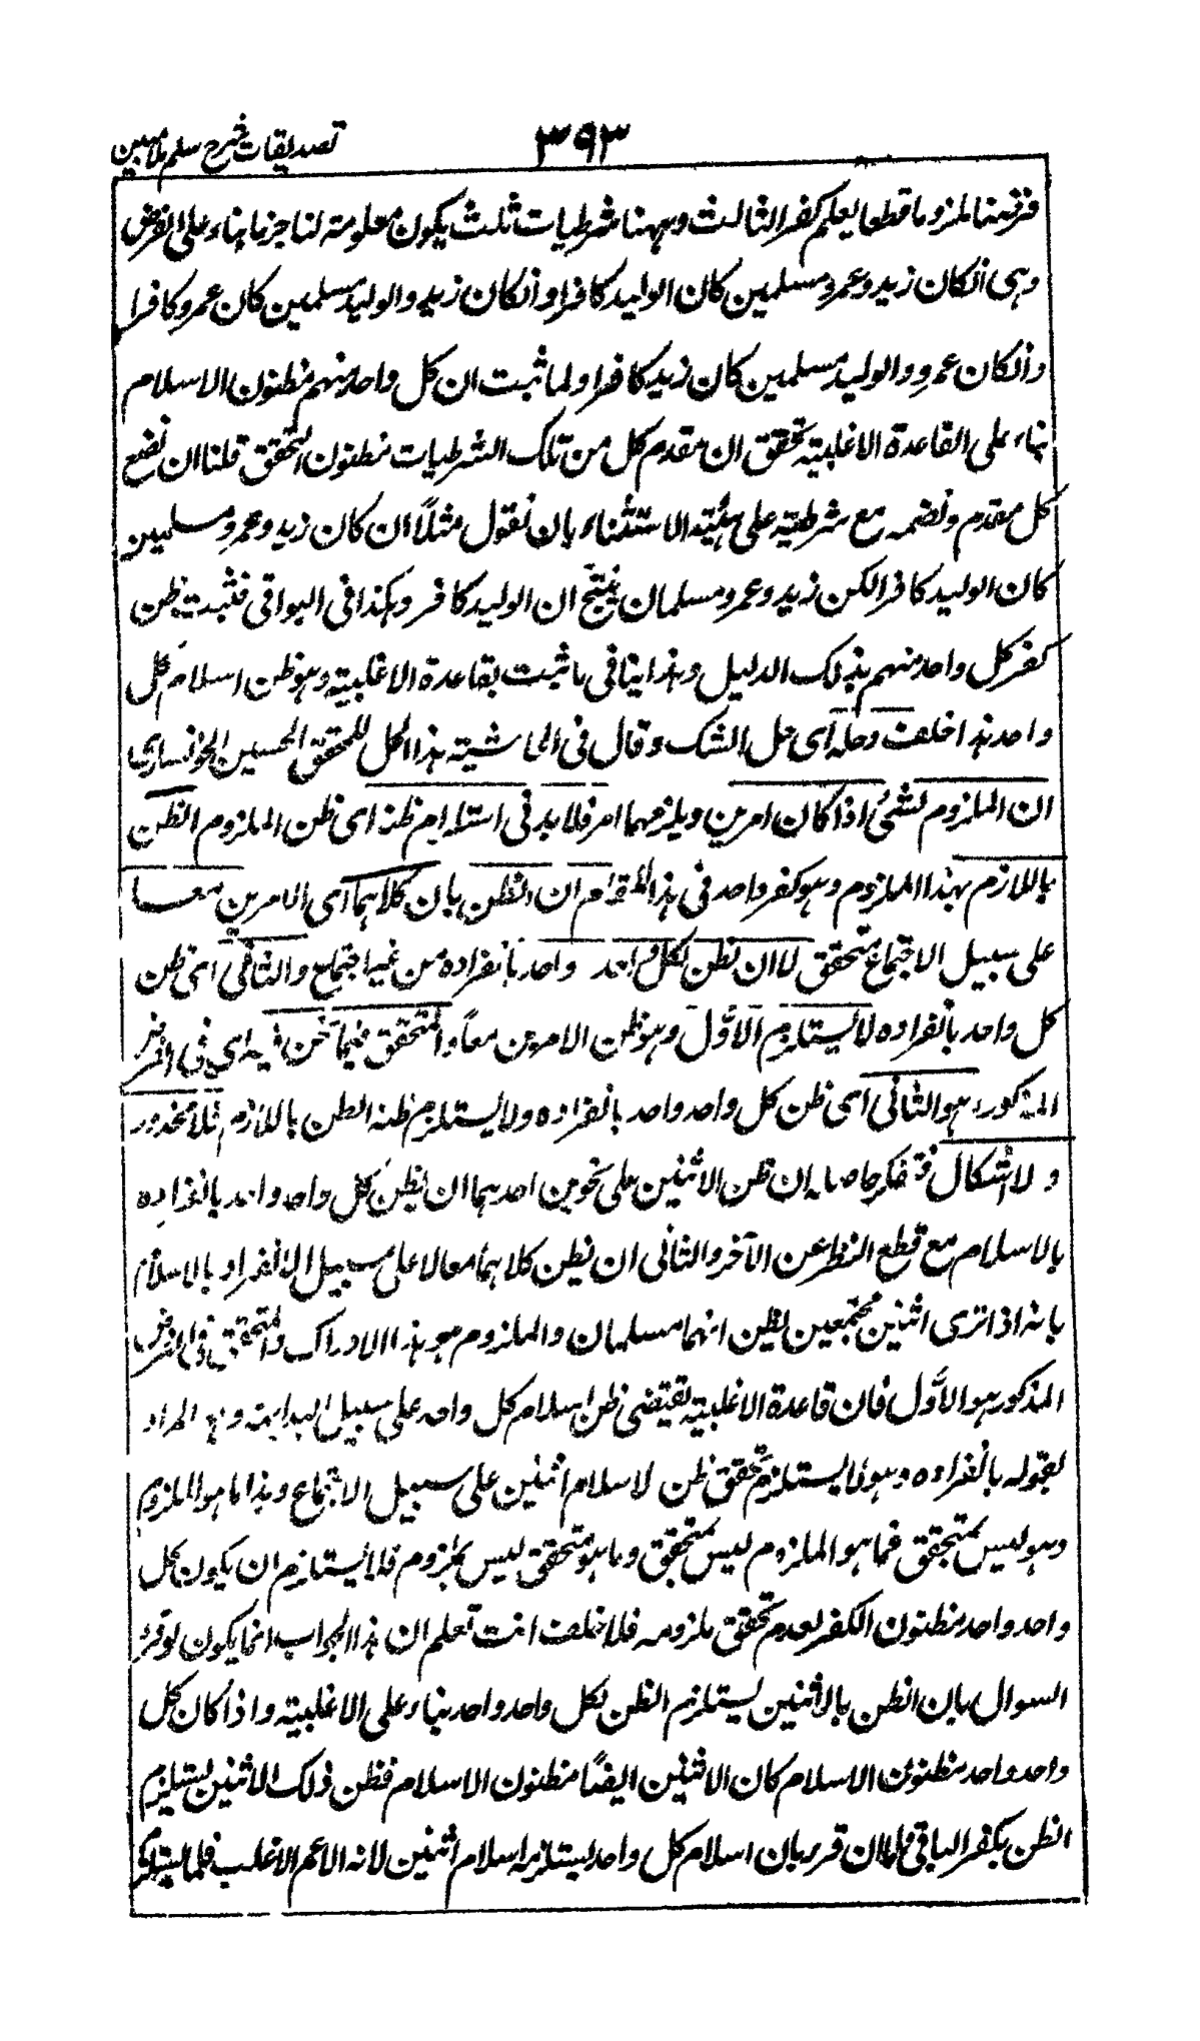 ٣٩٣
تصديقات شرح سلم ملا مبين
فرضنا لزوما قطعا يعلم كفر الثالث وههنا شرطيات ثلث يكون معلومة لنا جزما بناء على الفرض
وهى انكان زيد وعمرو مسلمين كان الوليد كافرا وانكان زيد والوليد مسلمين كان عمرو كافرا
وانكان عمرو والوليد مسلمين كان زيد كافرا ولما ثبت ان كل واحد منهم مظنون الاسلام
بناء على القاعدة الاغلبية تحقق ان مقدم كل من تلك الشرطيات مظنون التحقق قلنا ان نضع
كل مقدم ونضمه مع شرطية على هيئة الاستثناء بان نقول مثلاً ان كان زيد وعمرو مسلمين
كان الوليد كافرا لكن زيد وعمرو مسلمان ينتج ان الوليد كافر وهكذا فى البواقى فثبت ظن
كفر كل واحد منهم بذلك الدليل وهذا ينافى ما ثبت بقاعدة الاغلبية وهو ظن اسلام كل
واحد هذا خلف وحله اى حل الشك وقال فى الحاشية هذا الحل للمحقق الحسين الخوانسارى
ان الملزوم لشئ اذا كان امرين ويلزمهما امر فلا بد فى استلزام ظنه اى ظن الملزوم الظن
باللازم بهذا الملزوم وهو كفر واحد فى هذا المقام ان الظن بان كلاهما اى الامرين معا
على سبيل الاجتماع متحقق لا ان نظن لكل واحد واحد بانفراده من غير اجتماع والثانى اى ظن
كل واحد بانفراده لا يستلزم الاوّل وهو ظن الامرين معاً والمتحقق فيما نحن فيه اى فى الفرض
المذكور هو الثانى اى ظن كل واحد واحد بانفراده ولا يستلزم ظنه الظن باللازم فلا محذور
ولا اشكال فتفكر حاصله ان ظن الاثنين على نحوين احدهما ان يظن كل واحد واحد بانفراده
بالاسلام مع قطع النظر عن الآخر والثانى ان يظن كلاهما معا لا على سبيل الانفراد بالاسلام
بانه اذا ترى اثنين مجتمعين يظن انهما مسلمان والملزوم هو هذا الادراك والمتحقق فى الفرض
المذكور هو الاوّل فان قاعدة الاغلبية يقتضى ظن اسلام كل واحد على سبيل البداية وهو المراد
بقوله بانفراده وهو لا يستلزم تحقق ظن لاسلام اثنين على سبيل الاجتماع وهذا ما هو الملزوم
وهو ليس بمتحقق فما هو الملزوم ليس بمتحقق وما هو متحقق ليس بملزوم فلا يستلزم ان يكون كل
واحد واحد مظنون الكفر لعدم تحقق ملزومه فلا خلف انت تعلم ان هذا الجواب انما يكون لو قرر
السوال بان الظن بالاثنين يستلزم الظن لكل واحد واحد بناء على الاغلبية واذا كان كل
واحد واحد مظنون الاسلام كان الاثنين ايضًا مظنون الاسلام فظن ذلك الاثنين يستلزم
الظن بكفر الباقى واما ان قرر بان اسلام كل واحد يستلزم اسلام اثنين لانه الاعم الاغلب فلما